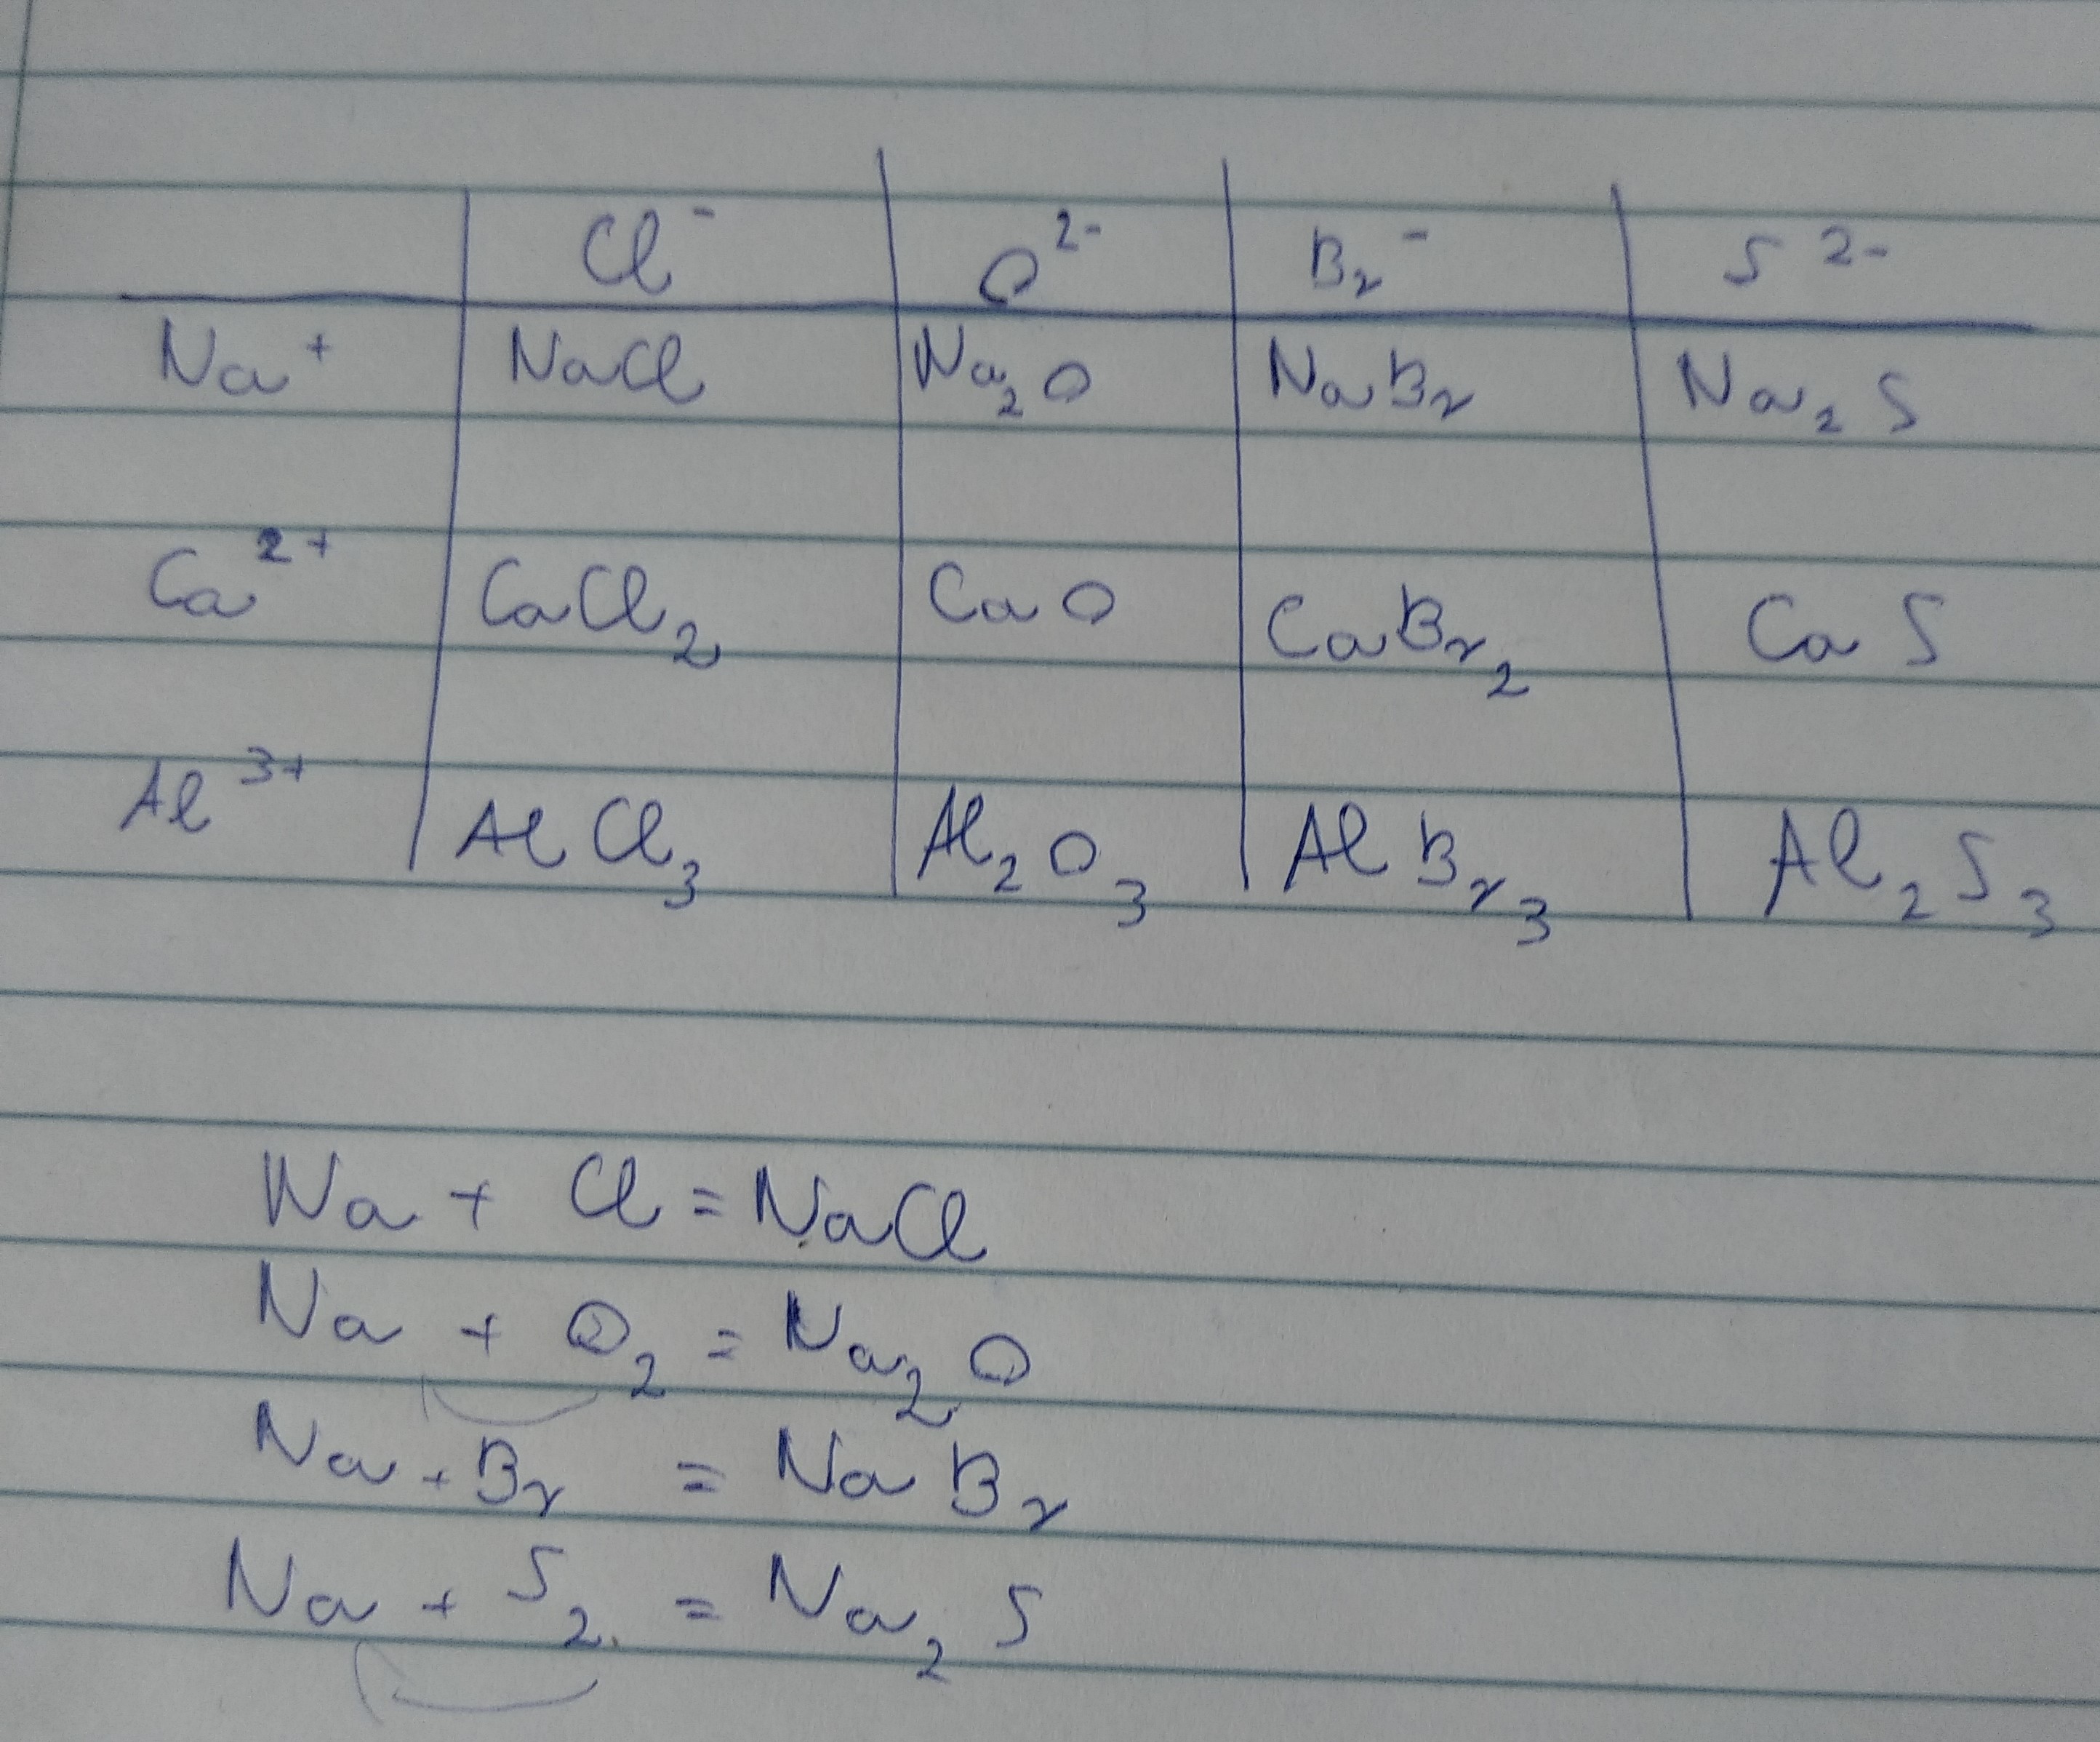 Cl⁻ O²⁻ Br⁻ S²⁻
Na⁺ NaCl Na₂O NaBr Na₂S
Ca²⁺ CaCl₂ CaO CaBr₂ CaS
Al³⁺ AlCl₃ Al₂O₃ AlBr₃ Al₂S₃
Na + Cl = NaCl
Na + O₂ = Na₂O
Na + Br = NaBr
Na + S₂. = Na₂S